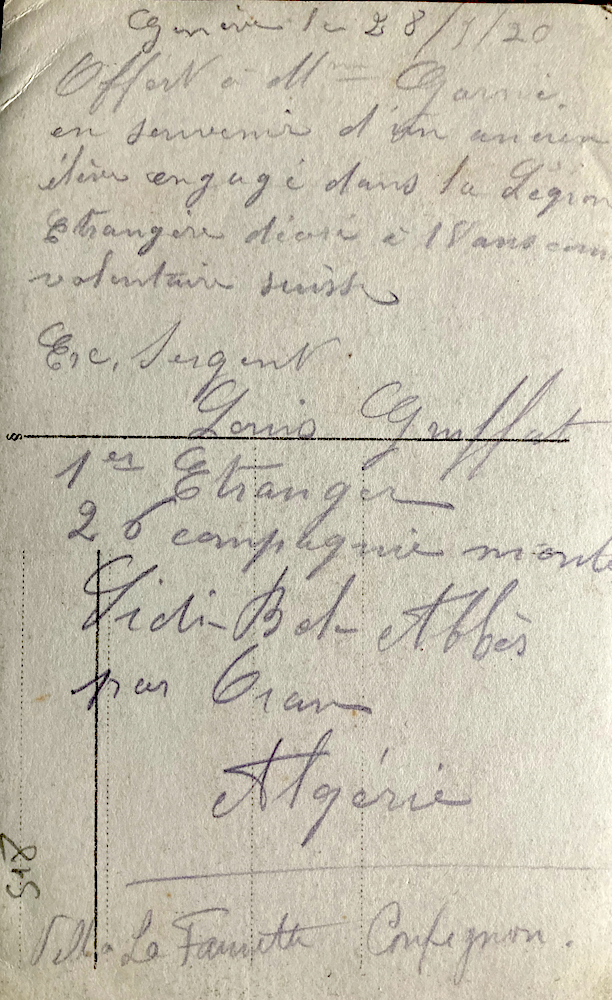 Genève le 28/9/20
Offert à Mme
en souvenir d'un ancien
élève engagé dans la Légion
Etrangère décoré à 18 ans com
volontaire suisse
Exc. Sergent
Louis Gruffat
1er Etranger
26 compagnie monté
Sidi-Bel-Abbès
par Oran
Algérie
Villa La Fauvette Confignon.
518